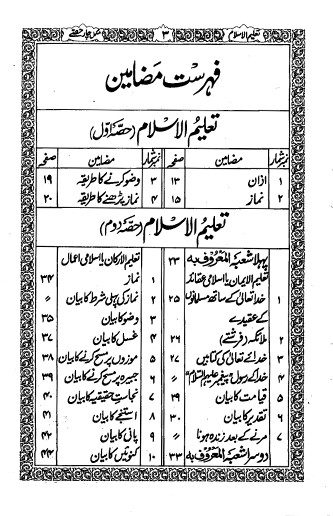 تعلیم الاسلام
۳
فہرست مضامین
تعلیم الاسلام (حصہ اول)
نمبر شمار مضامین صفحہ نمبر شمار مضامین صفحہ
۱ اذان ۱۳ ۳ وضو کرنے کا طریقہ ۱۹
۲ نماز ۱۵ ۴ نماز پڑھنے کا طریقہ ۲۰
تعلیم الاسلام (حصہ دوم)
پہلا شعبہ المعروف بہ ۲۳
تعلیم الایمان یا اسلامی عقائد
۱ خدا تعالیٰ کے ساتھ مسلمانوں ۲۵
کے عقیدے
۲ ملائکہ (فرشتے) ۲۶
۳ خدائے تعالیٰ کی کتابیں ۲۷
۴ خدا کے رسول "پیغمبر علیہم السلام" ״
۵ قیامت کا بیان ۲۹
۶ تقدیر کا بیان ۳۰
۷ مرنے کے بعد زندہ ہونا ״
دوسرا شعبہ المعروف بہ ۳۳
تعلیم الارکان یا اسلامی اعمال
۱ نماز ۳۴
۲ نماز کی پہلی شرط کا بیان ״
۳ وضو کا بیان ۳۵
۴ غسل کا بیان ۳۷
۵ موزوں پر مسح کرنے کا بیان ۳۸
۶ جبیرہ پر مسح کرنے کا بیان ۳۹
۷ نجاست حقیقیہ کا بیان ۴۰
۸ استنجے کا بیان ۴۱
۹ پانی کا بیان ۴۲
۱۰ کنوئیں کا بیان ۴۴